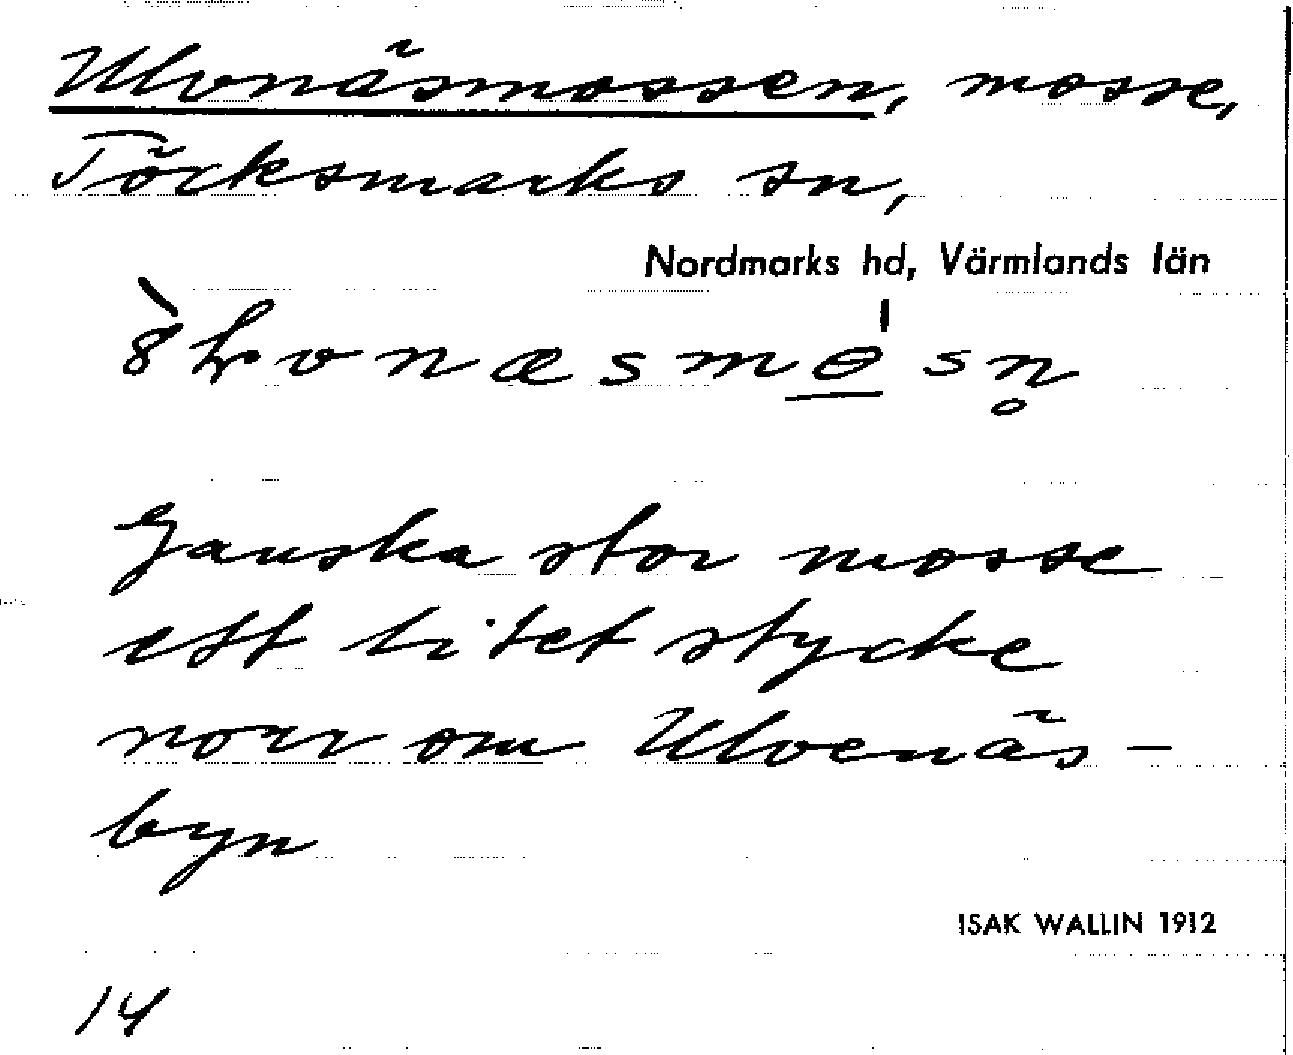 Ulvnäsmossen, mosse,
Töcksmarks sn,
Nordmarks hd, Värmlands län
Ganska stor mosse
ett litet stycke
norr om Ulvenäs-
byn
ISAK WALLIN 1912
14